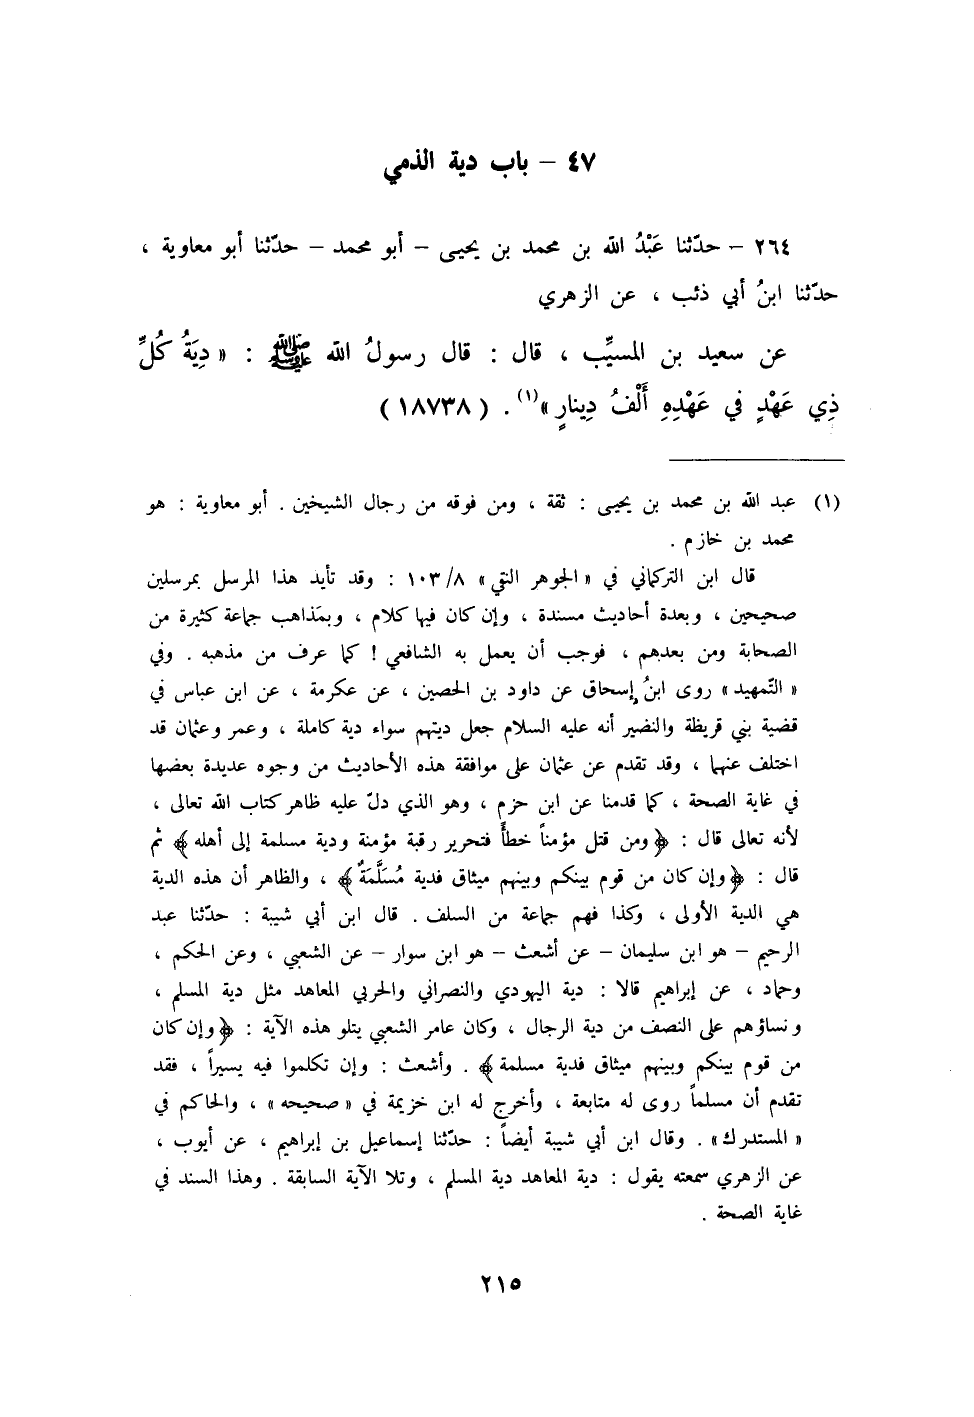 ٤٧ – باب دية الذمي
٢٦٤ – حدّثنا عَبْدُ الله بن محمد بن يحيى – أبو محمد – حدّثنا أبو معاوية ،
حدّثنا ابنُ أبي ذئب ، عن الزهري
عن سعيد بن المسيِّب ، قال : قال رسولُ الله ﷺ : « دِيَةُ كُلِّ
ذِي عَهْدٍ في عَهْدِهِ أَلْفُ دِينارٍ »(١) . ( ١٨٧٣٨ )
(١) عبد الله بن محمد بن يحيى : ثقة ، ومن فوقه من رجال الشيخين . أبو معاوية : هو
محمد بن خازم .
قال ابن التركماني في « الجوهر النقي » ٨/ ١٠٣ : وقد تأيد هذا المرسل بمرسلين
صحيحين ، وبعدة أحاديث مسندة ، وإن كان فيها كلام ، وبمَذاهب جماعة كثيرة من
الصحابة ومن بعدهم ، فوجب أن يعمل به الشافعي ! كما عرف من مذهبه . وفي
« التّمهيد » روى ابنُ إسحاق عن داود بن الحصين ، عن عكرمة ، عن ابن عباس في
قضية بني قريظة والنضير أنه عليه السلام جعل ديتهم سواء دية كاملة ، وعمر وعثمان قد
اختلف عنهما ، وقد تقدم عن عثمان على موافقة هذه الأحاديث من وجوه عديدة بعضها
في غاية الصحة ، كما قدمنا عن ابن حزم ، وهو الذي دلّ عليه ظاهر كتاب الله تعالى ،
لأنه تعالى قال : ﴿ومن قتل مؤمناً خطأً فتحرير رقبة مؤمنة ودية مسلمة إلى أهله﴾ ثم
قال : ﴿وإن كان من قوم بينكم وبينهم ميثاق فدية مُسَلَّمَةٌ﴾ ، والظاهر أن هذه الدية
هي الدية الأولى ، وكذا فهم جماعة من السلف . قال ابن أبي شيبة : حدّثنا عبد
الرحيم – هو ابن سليمان – عن أشعث – هو ابن سوار – عن الشعبي ، وعن الحكم ،
وحماد ، عن إبراهيم قالا : دية اليهودي والنصراني والحربي المعاهد مثل دية المسلم ،
ونساؤهم على النصف من دية الرجال ، وكان عامر الشعبي يتلو هذه الآية : ﴿وإن كان
من قوم بينكم وبينهم ميثاق فدية مسلمة﴾ . وأشعث : وإن تكلموا فيه يسيراً ، فقد
تقدم أن مسلماً روى له متابعة ، وأخرج له ابن خزيمة في « صحيحه » ، والحاكم في
« المستدرك » . وقال ابن أبي شيبة أيضاً : حدّثنا إسماعيل بن إبراهيم ، عن أيوب ،
عن الزهري سمعته يقول : دية المعاهد دية المسلم ، وتلا الآية السابقة . وهذا السند في
غاية الصحة .
٢١٥